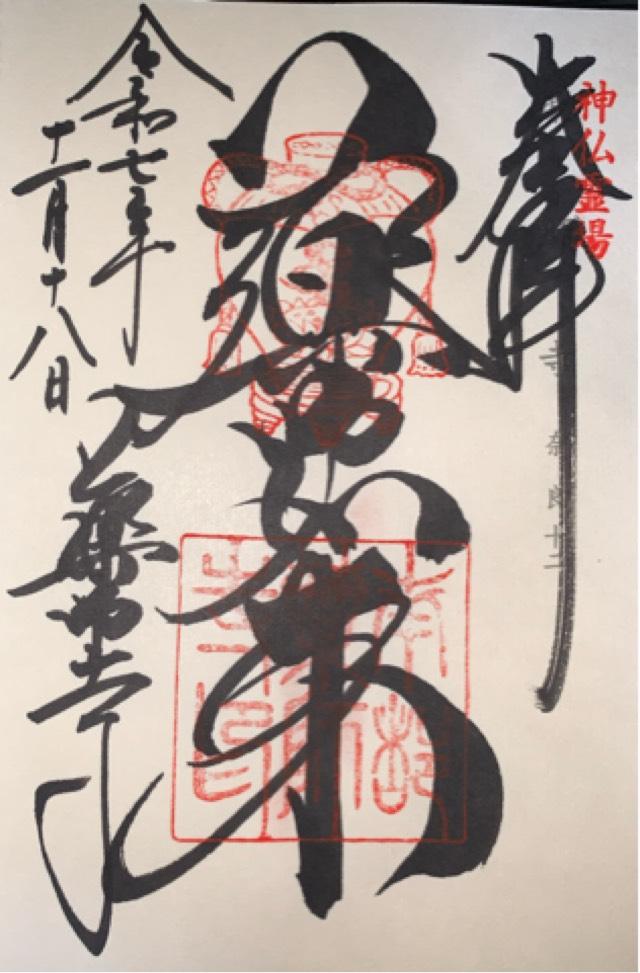 奉拝
神仏霊場
奈良十二
薬師如来
令和七年
十一月十八日
薬師寺